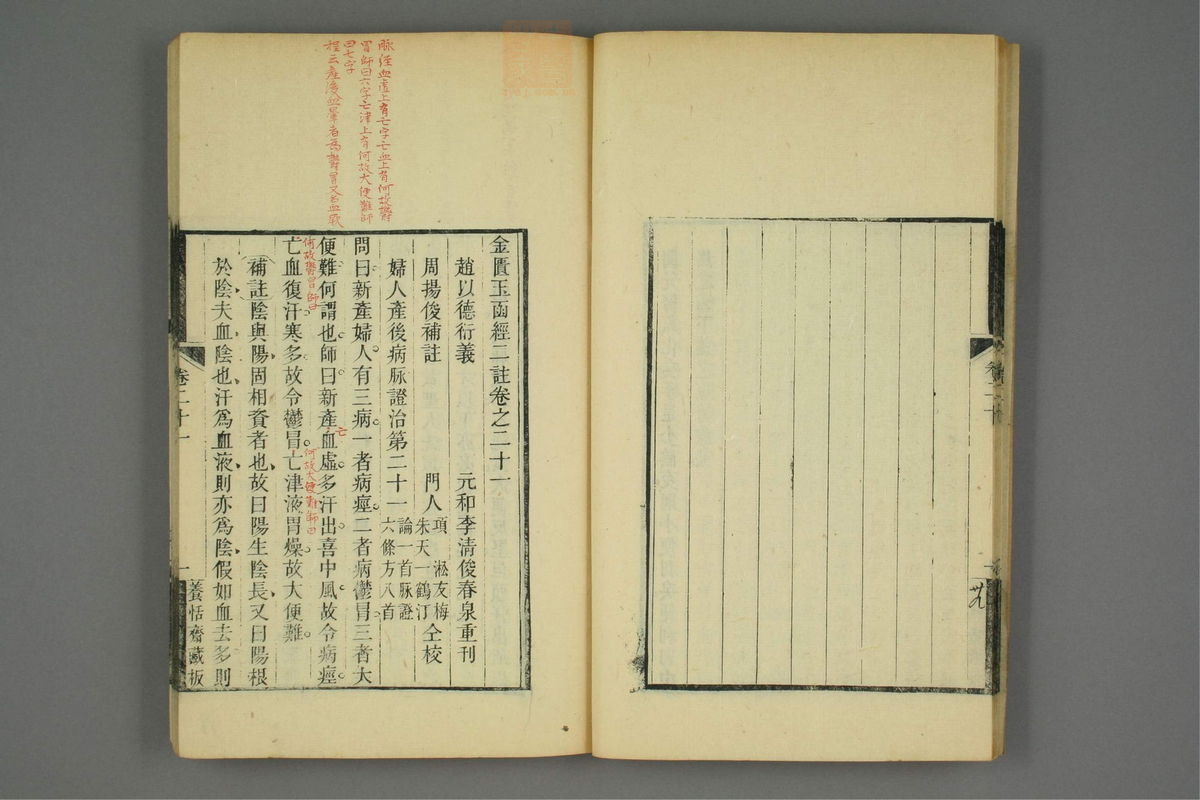 卷二十
金匱玉函經二註卷之二十一
趙以德衍義 元和李清俊春泉重刊
周揚俊補註 門人 項淞友梅 朱天一鶴汀 仝校
婦人產後病脈證治第二十一 論一首脈證六條方八首
問曰新產婦人有三病一者病痙二者病鬱冒三者大
便難何謂也師曰新產血虛多汗出喜中風故令病痙
亡血復汗寒多故令鬱冒亡津液胃燥故大便難
補註陰與陽固相資者也故曰陽生陰長又曰陽根
於陰夫血陰也汗爲血液則亦爲陰假如血去多則
卷二十一
一
養恬齋藏板
脈經血虛上有亡字亡血上有何故鬱
冒師曰六字亡津上有何故大便難師
曰七字
程云產後血暈者爲鬱冒又名血厥
亡
何故鬱冒師曰
何故大便難師曰